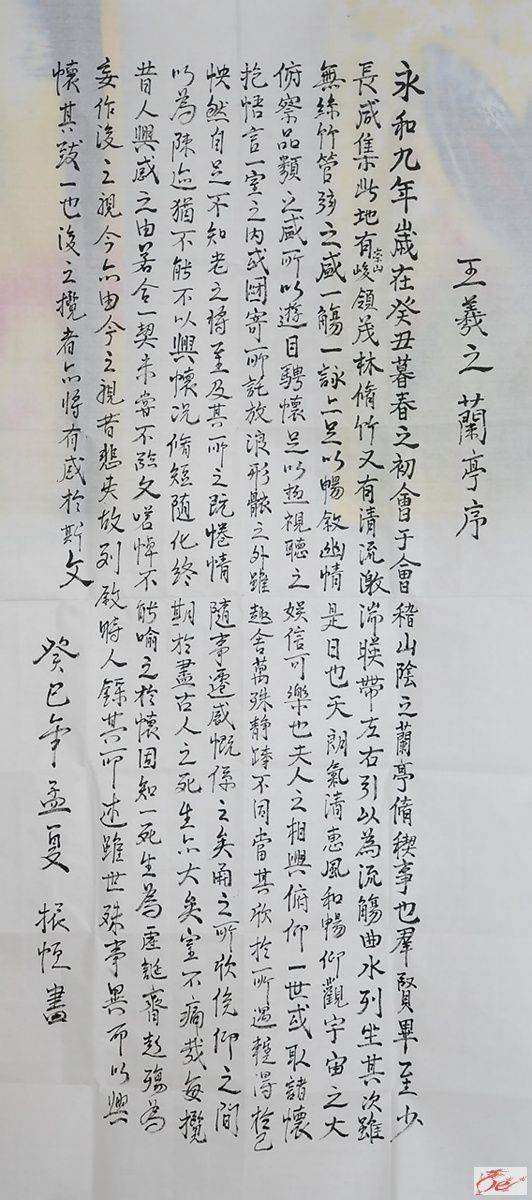 王羲之蘭亭序
永和九年歲在癸丑暮春之初會于會稽山陰之蘭亭脩稧事也羣賢畢至少
長咸集此地有崇山峻領茂林脩竹又有清流激湍暎帶左右引以為流觴曲水列坐其次雖
無絲竹管弦之盛一觴一詠亦足以暢敘幽情是日也天朗氣清惠風和暢仰觀宇宙之大
俯察品類之盛所以遊目騁懷足以極視聽之娛信可樂也夫人之相與俯仰一世或取諸懷
抱悟言一室之內或因寄所託放浪形骸之外雖趣舍萬殊静躁不同當其欣於所遇輙得於己
怏然自足不知老之將至及其所之既惓情隨事遷感慨係之矣向之所欣俛仰之間
以為陳迹猶不能不以興懷況脩短随化終期於盡古人之死生亦大矣豈不痛哉每攬
昔人興感之由若合一契未嘗不臨文嗟悼不能喻之於懷固知一死生為虛誕齊彭殤為
妄作後之視今亦由今之視昔悲夫故列敘時人錄其所述雖世殊事異所以興
懷其致一也後之攬者亦將有感於斯文
癸巳年孟夏 振恒書